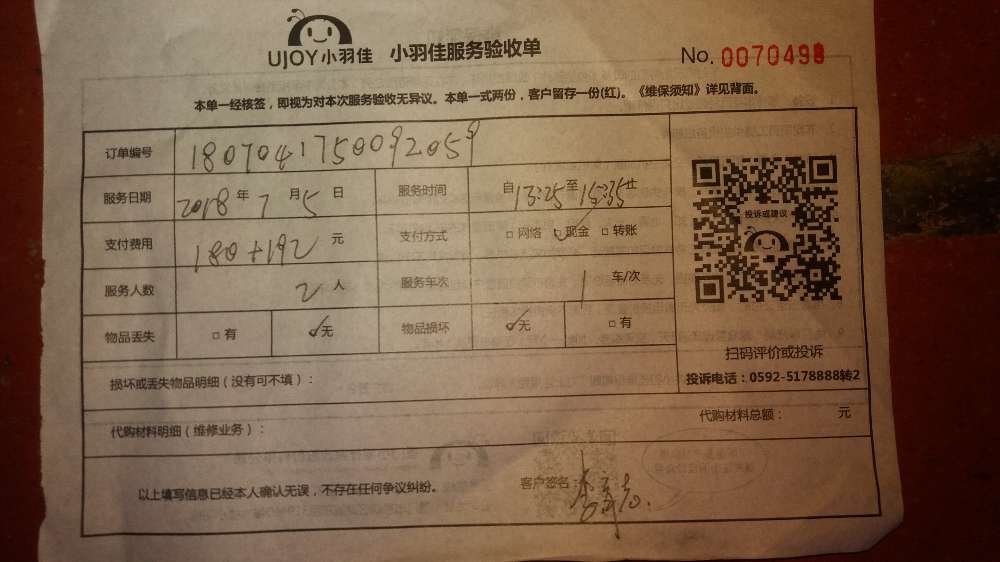 UJOY小羽佳 小羽佳服务验收单 No. 0070498
本单一经核签，即视为对本次服务验收无异议。本单一式两份，客户留存一份(红)。《维保须知》详见背面。
订单编号 1807041750092059
服务日期 2018年7月5日 服务时间 自13:25至15:35止
投诉或建议
支付费用 180+192元 支付方式 □网络 ☑现金 □转账
服务人数 2人 服务车次 1车/次
物品丢失 □有 ☑无 物品损坏 ☑无 □有
扫码评价或投诉
投诉电话：0592-5178888转2
损坏或丢失物品明细（没有可不填）：
代购材料明细（维修业务）： 代购材料总额： 元
以上填写信息已经本人确认无误，不存在任何争议纠纷。 客户签名：